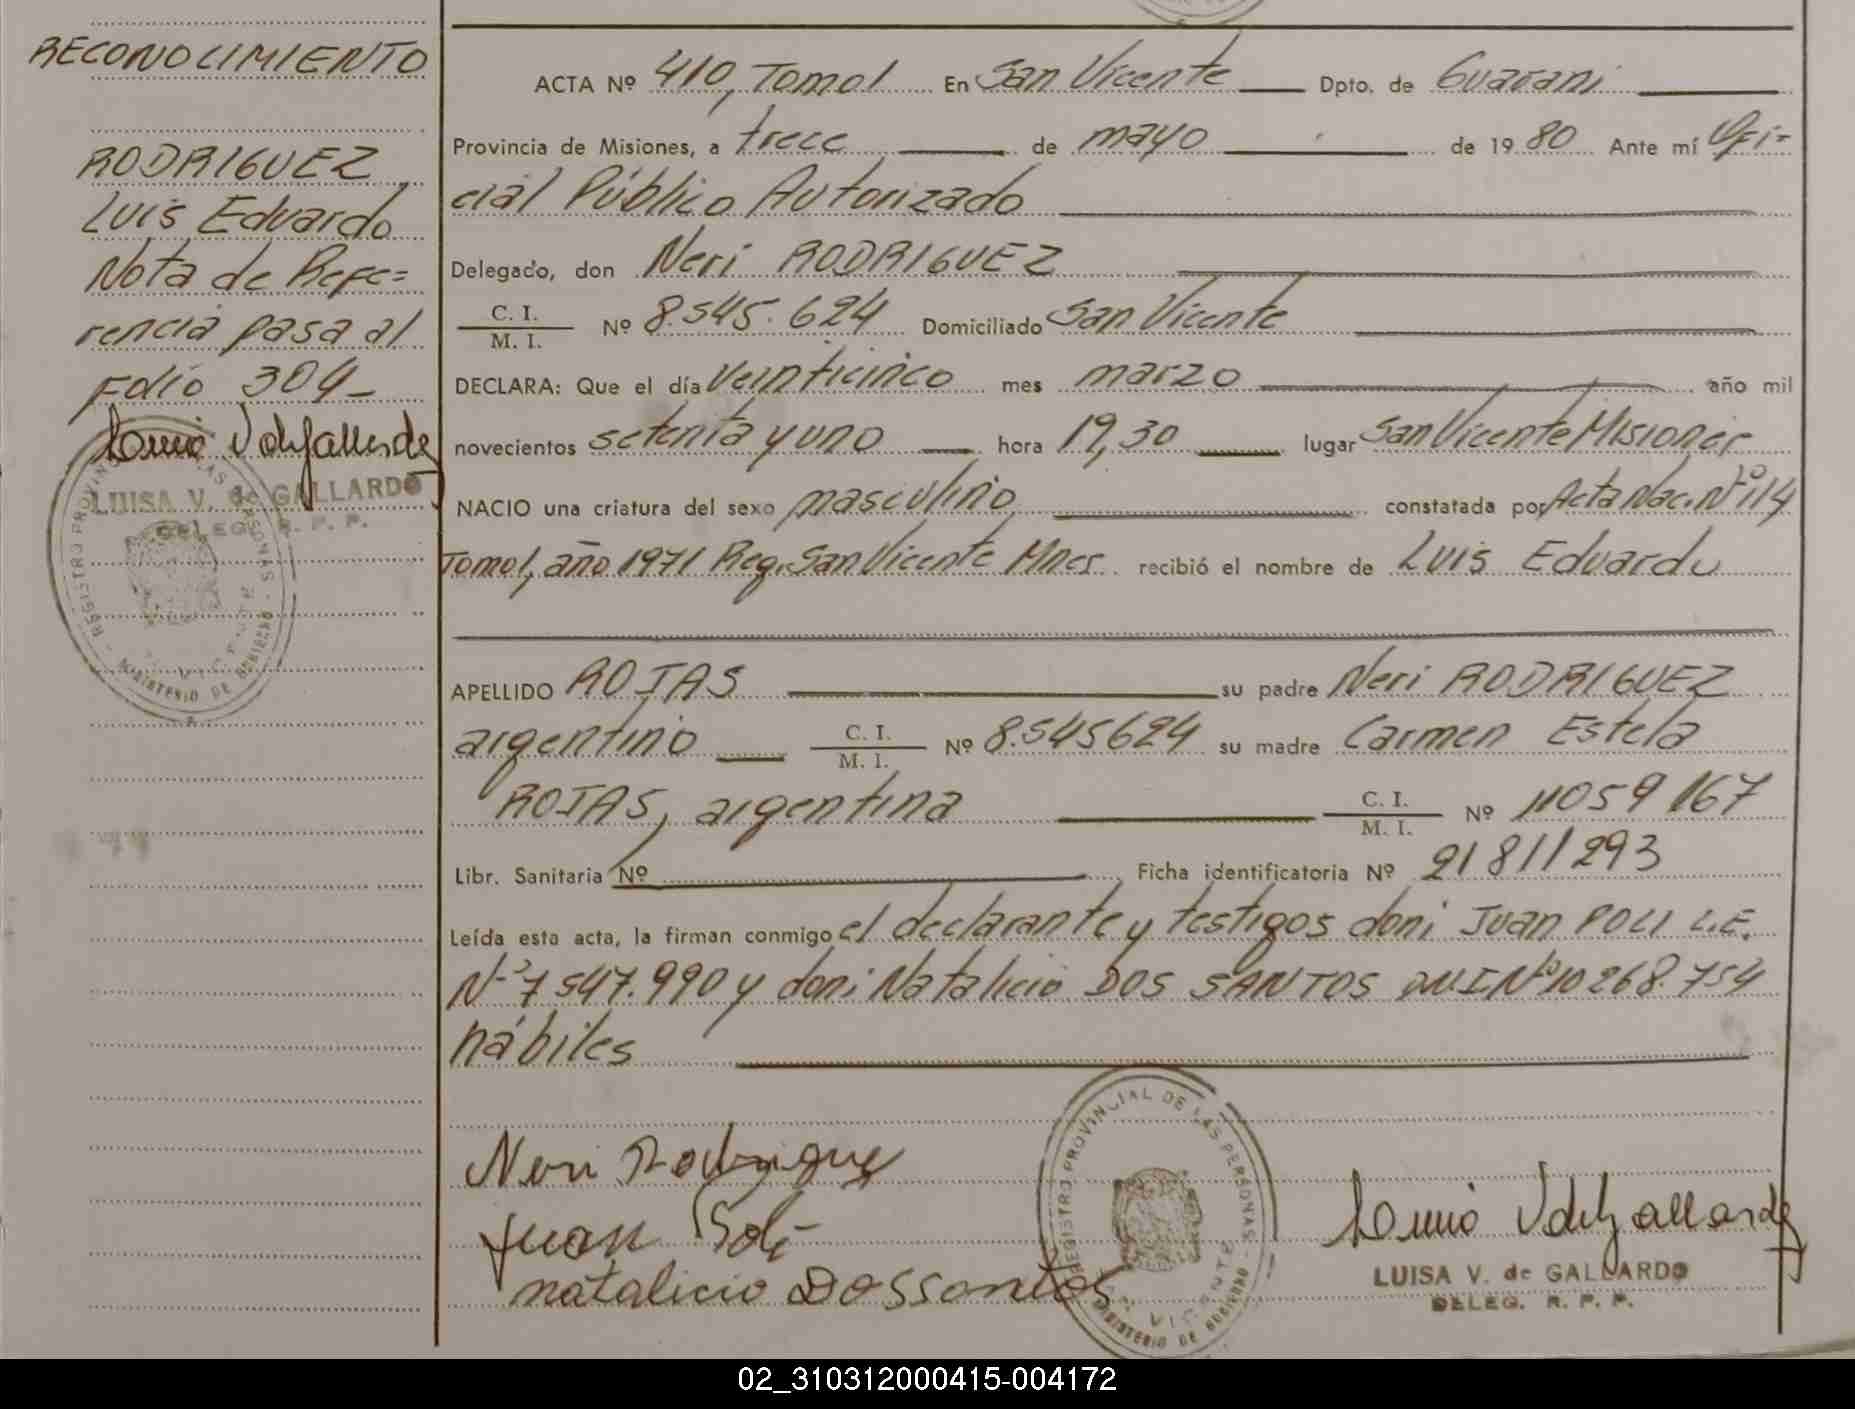 RECONOCIMIENTO
RODRIGUEZ
Luis Eduardo
Nota de Refe=
rencia pasa al
Folio 304_
LUISA V. de GALLARDO
DELEG. R. P. P.
REGISTRO PROVINCIAL DE LAS PERSONAS - MINISTERIO DE GOBIERNO
ACTA Nº 410, Tomo I En San Vicente Dpto. de Guaraní
Provincia de Misiones, a trece de mayo de 1980 Ante mí Ofi=
cial Público Autorizado
Delegado, don Neri RODRIGUEZ
C. I. / M. I. Nº 8.545.624 Domiciliado San Vicente
DECLARA: Que el día veinticinco mes marzo año mil
novecientos setenta y uno hora 19,30 lugar San Vicente Misiones
NACIO una criatura del sexo masculino, constatada por Acta Nac. Nº 114
Tomo I, año 1971 Reg. San Vicente Mnes. recibió el nombre de Luis Eduardo
APELLIDO ROJAS su padre Neri RODRIGUEZ
argentino C. I. / M. I. Nº 8.545624 su madre Carmen Estela
ROJAS, argentina C. I. / M. I. Nº 11059167
Libr. Sanitaria Nº Ficha identificatoria Nº 21811293
Leída esta acta, la firman conmigo el declarante y testigos don: Juan POLI L.E.
Nº 7547.990 y don: Natalicio DOS SANTOS DNI Nº 10268.754
hábiles
Neri Rodriguez
Juan Poli
natalicio Dossantos
REGISTRO PROVINCIAL DE LAS PERSONAS - MINISTERIO DE GOBIERNO
VICENTE
LUISA V. de GALLARDO
DELEG. R. P. P.
02_310312000415-004172